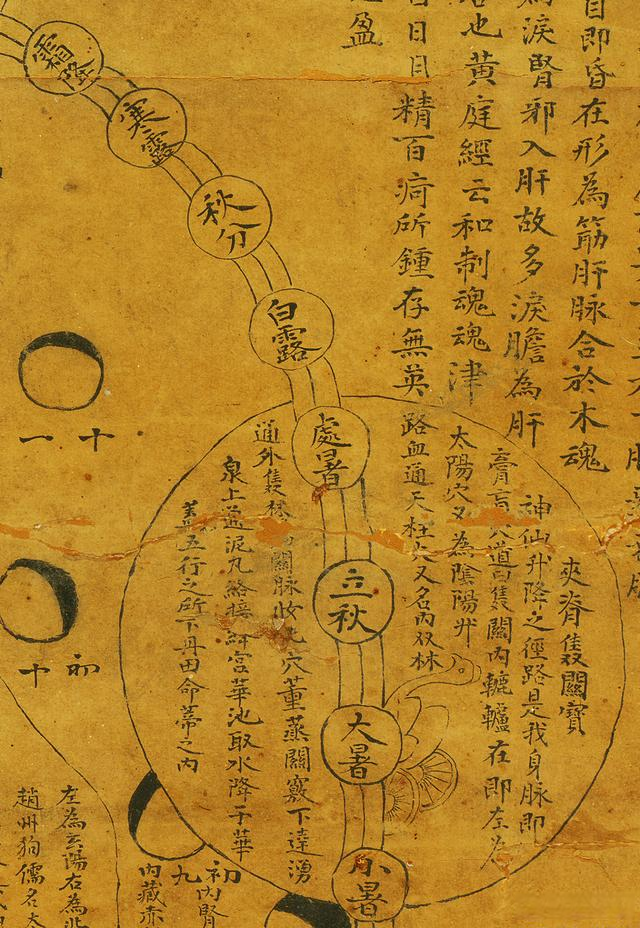 目即昏在形為筋肝脉合於木魂
為淚腎邪入肝故多淚膽為肝
也黃庭經云和制魂魂津
精百疴所鍾存無英
盈
夾脊雙關寶
神仙升降之徑路是我身脉即
膏肓穴道曰雙關內轆轤在即左為
太陽穴又為陰陽井
路血通天柱穴又名內双林
霜降
寒露
秋分
白露
處暑
立秋
大暑
小暑
道外雙林 關脉 穴薰蒸關竅下達湧
泉上通泥丸絡接絳宮華池取水降于華
蓋五行之所下丹田命蒂之內
十一
初十
初九
內腎
內藏赤
左為玄陽右為牝
趙州狗儒名太